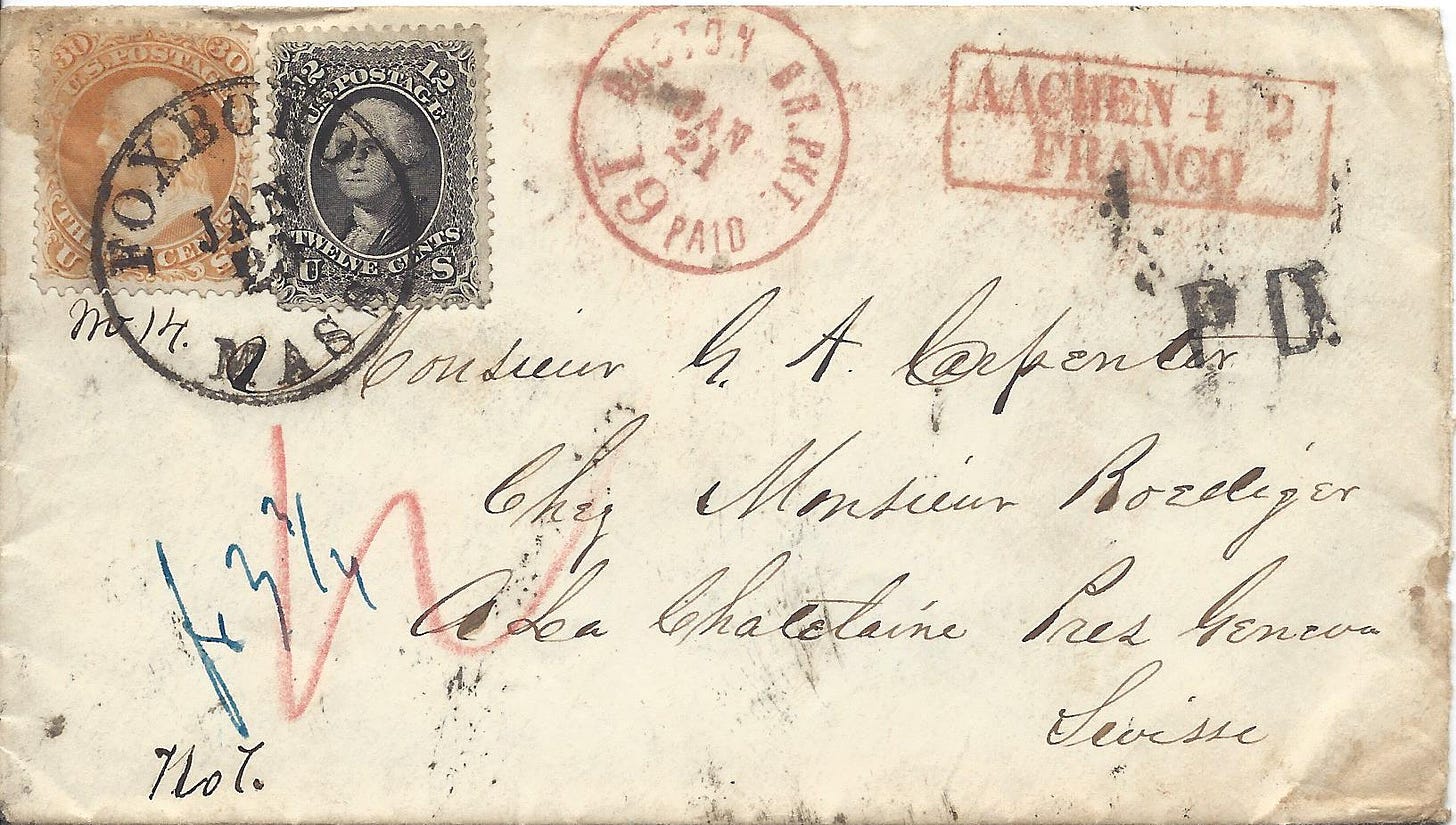 30 30
U.S. POSTAGE
U S
12 12
U.S. POSTAGE
TWELVE CENTS
U S
FOXBORO
JAN
MASS
BOSTON BR. PKT.
JAN
21
19 PAID
AACHEN 4 2
FRANCO
P D.
Monsieur G. A. Carpenter
Chez Monsieur Roediger
A La Chatelaine Prez Geneva
Suisse